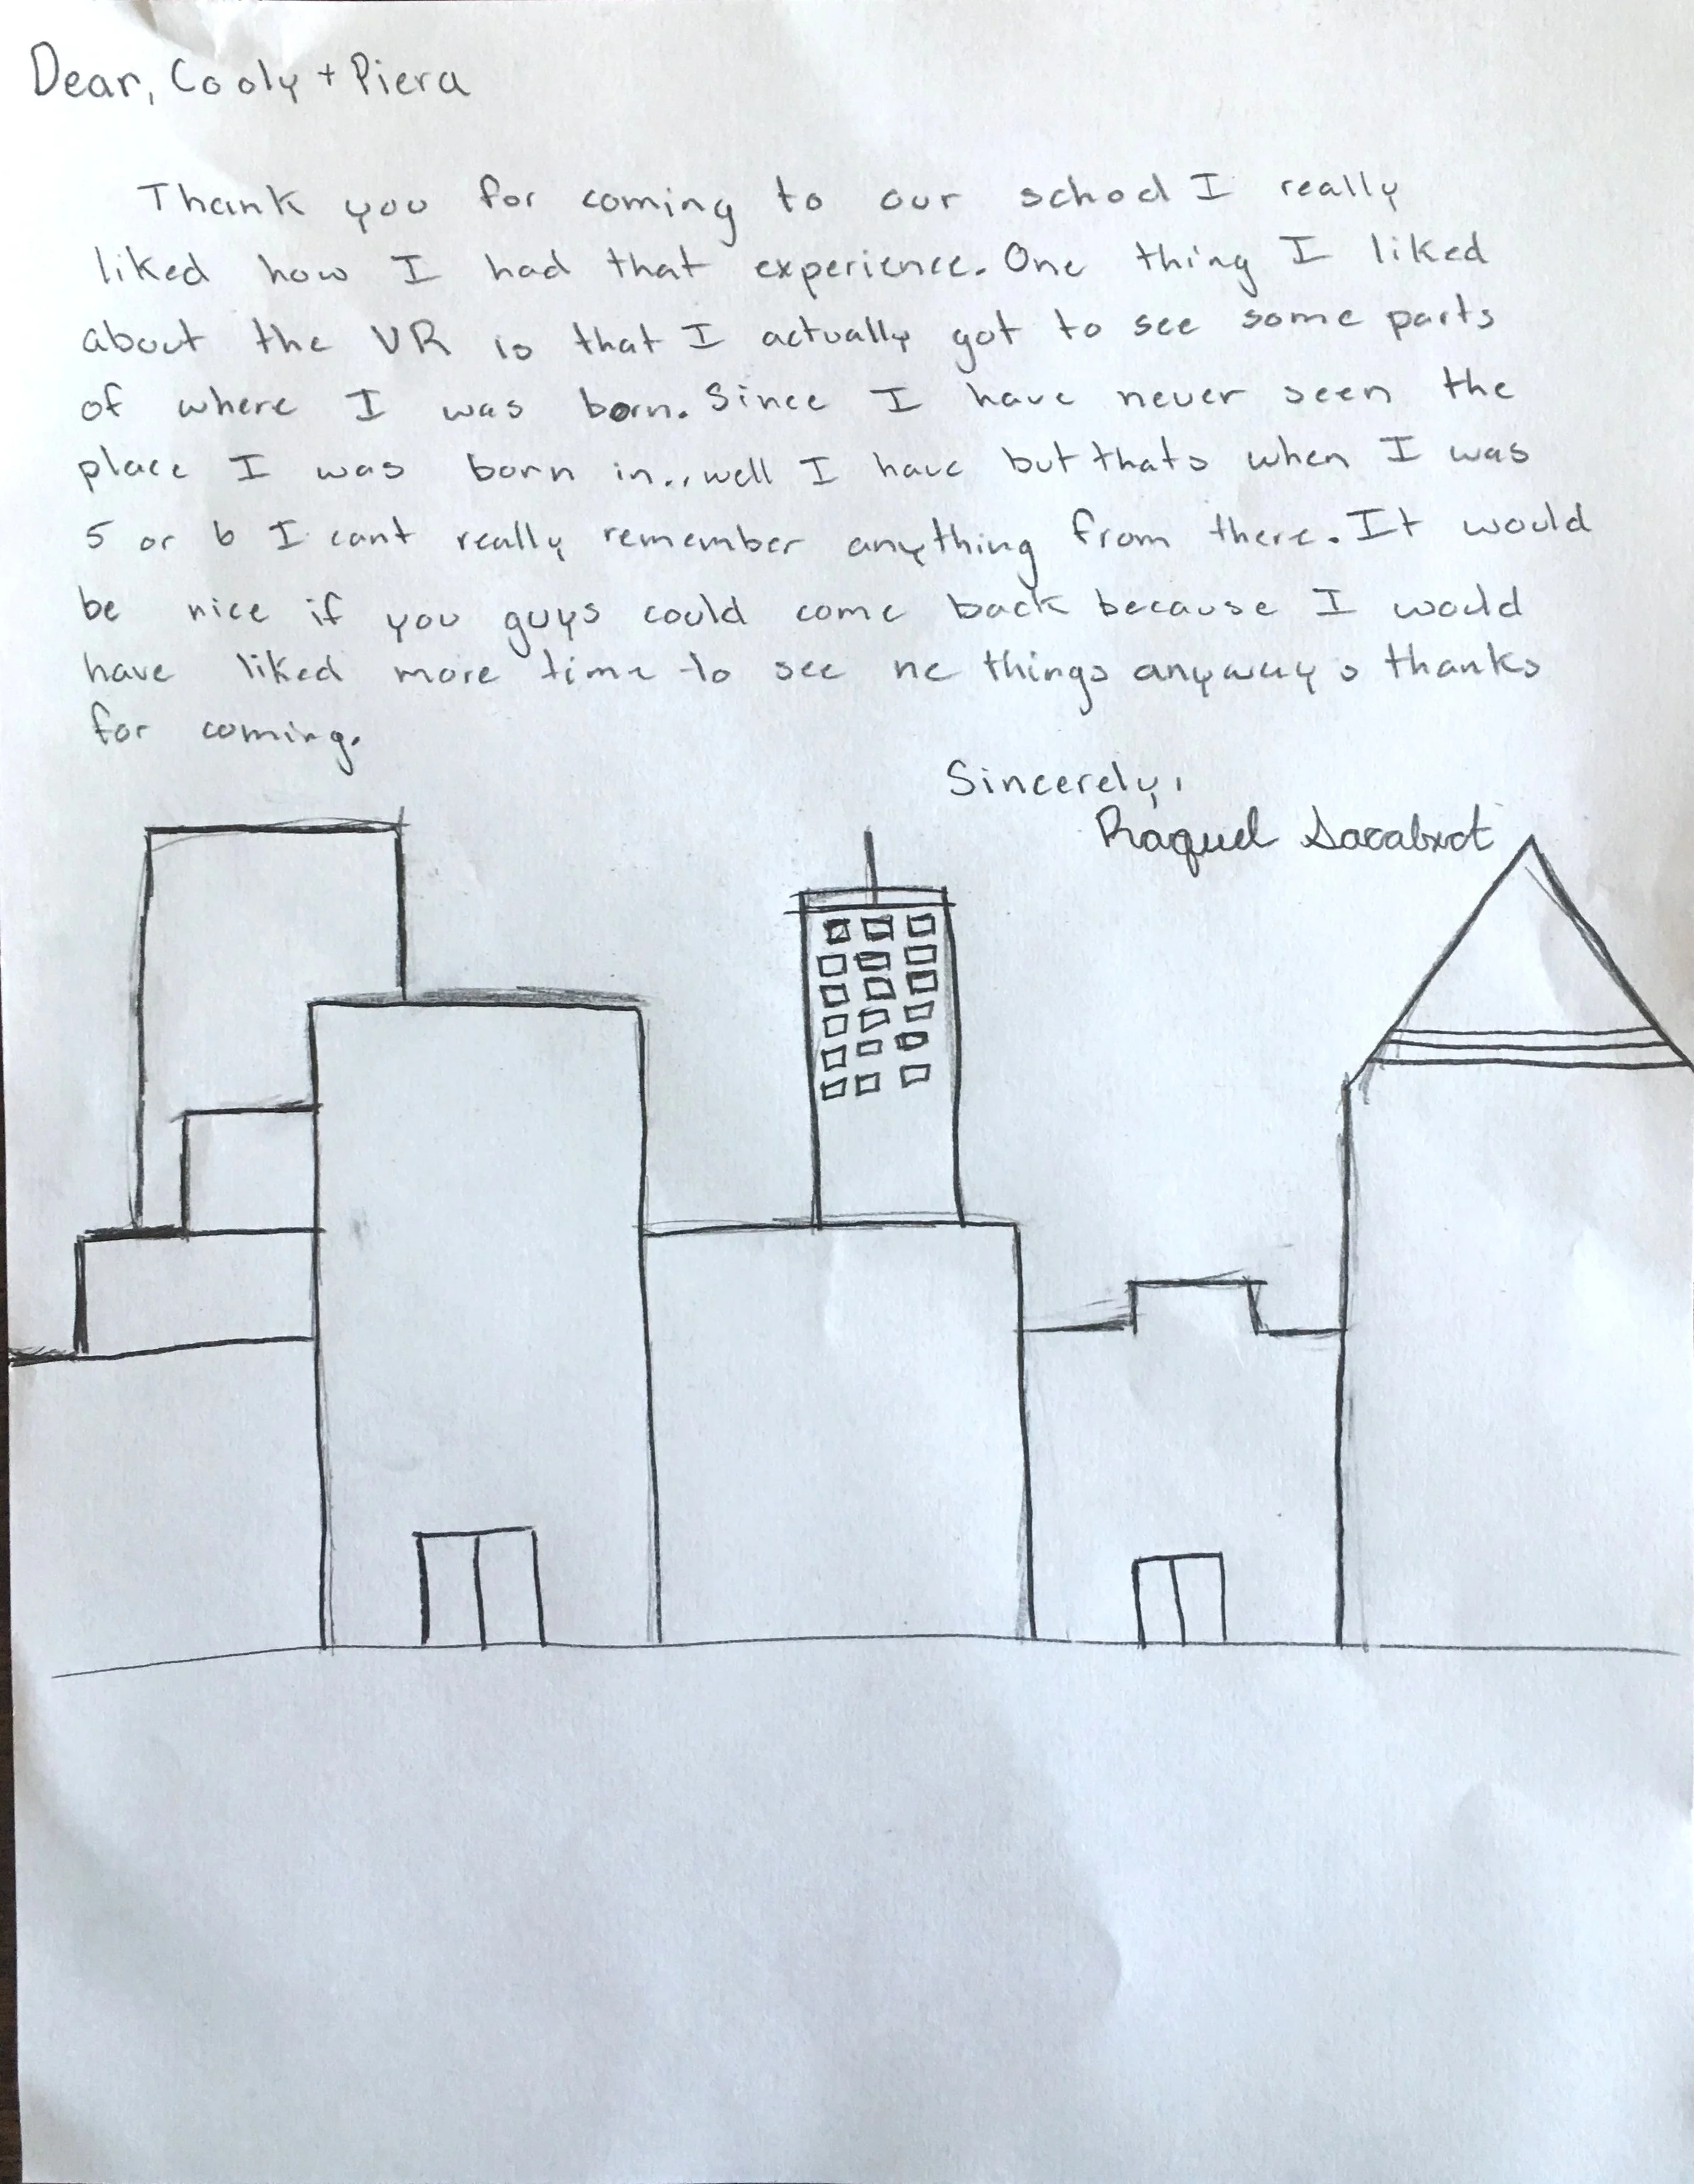 Dear, Cooly + Piera
Thank you for coming to our school I really
liked how I had that experience. One thing I liked
about the VR is that I actually got to see some parts
of where I was born. Since I have never seen the
place I was born in.. well I have but thats when I was
5 or 6 I cant really remember anything from there. It would
be nice if you guys could come back because I would
have liked more time to see ne things anyways thanks
for coming.
Sincerely,
Raquel